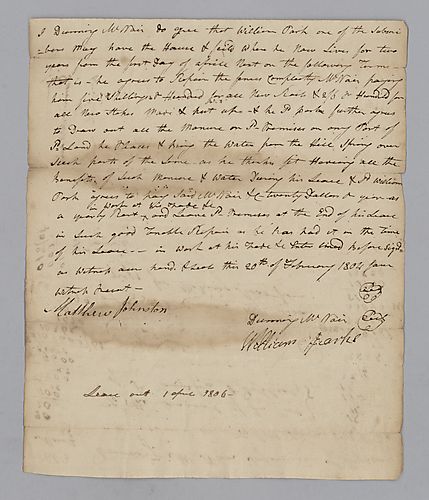 I Dunning McNair do agree that William Park one of the Subscri
-bers May have the House & field Where he Now Lives for two
years from the first Day of aprile Next on the following Terms
that is – he agrees to Repair the fences Compleatly McNair paying
him five Shillings & Hundred for all New Rails & 2/6 & Hundred for
all New Stakes Made & put up – & he Sd parke further agres
to Draw out all the Manure on Sd Premises on any Part of
Sd Land he Pleases & bring the Water from the Hill Spring over
Such parts of the Same as he thinks fet Having all the
Benefits of Such Manure & Water During his Lease & Sd William
Park agrees to pay Said McNair & Co twenty Dollars a year as
in Work at his Trade
a yearly Rent & and Leave Sd Premises at the End of his Lease
in Such good Tenable Repair as he has had it on the time
of his Lease – in Work at his Trade
as witness our hand & Seals this 20th of February 1804
Witness Present –
Matthew Johnston
Dunning McNair
William Parke
Lease out 1 april 1806 –